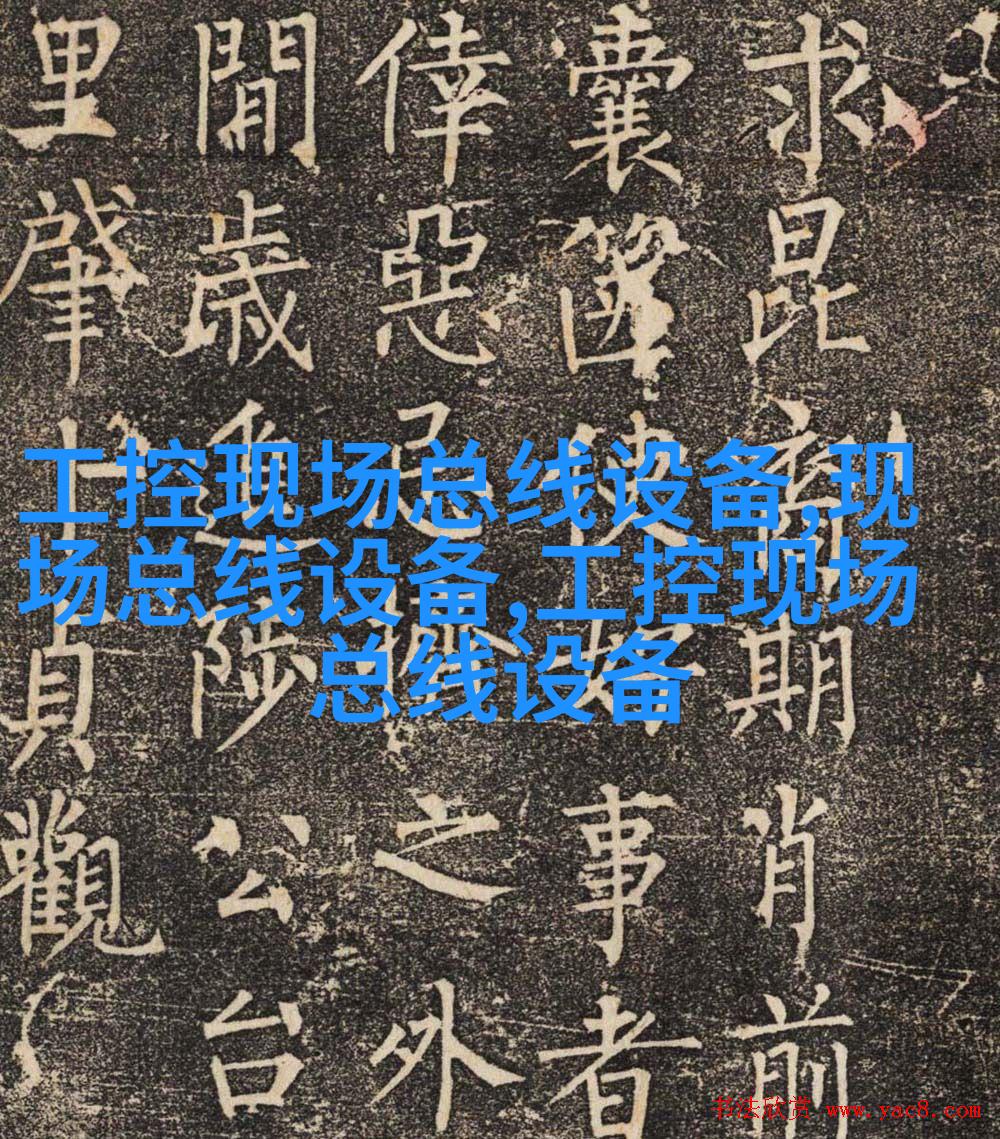 工控现场总线设备,现
场总线设备,工控现场
总线设备
求昆齊期肖前
囊篋使好事者
倖惡忌之外
閒歳陟公台
里肇貞觀
书法欣赏 www.yac8.com